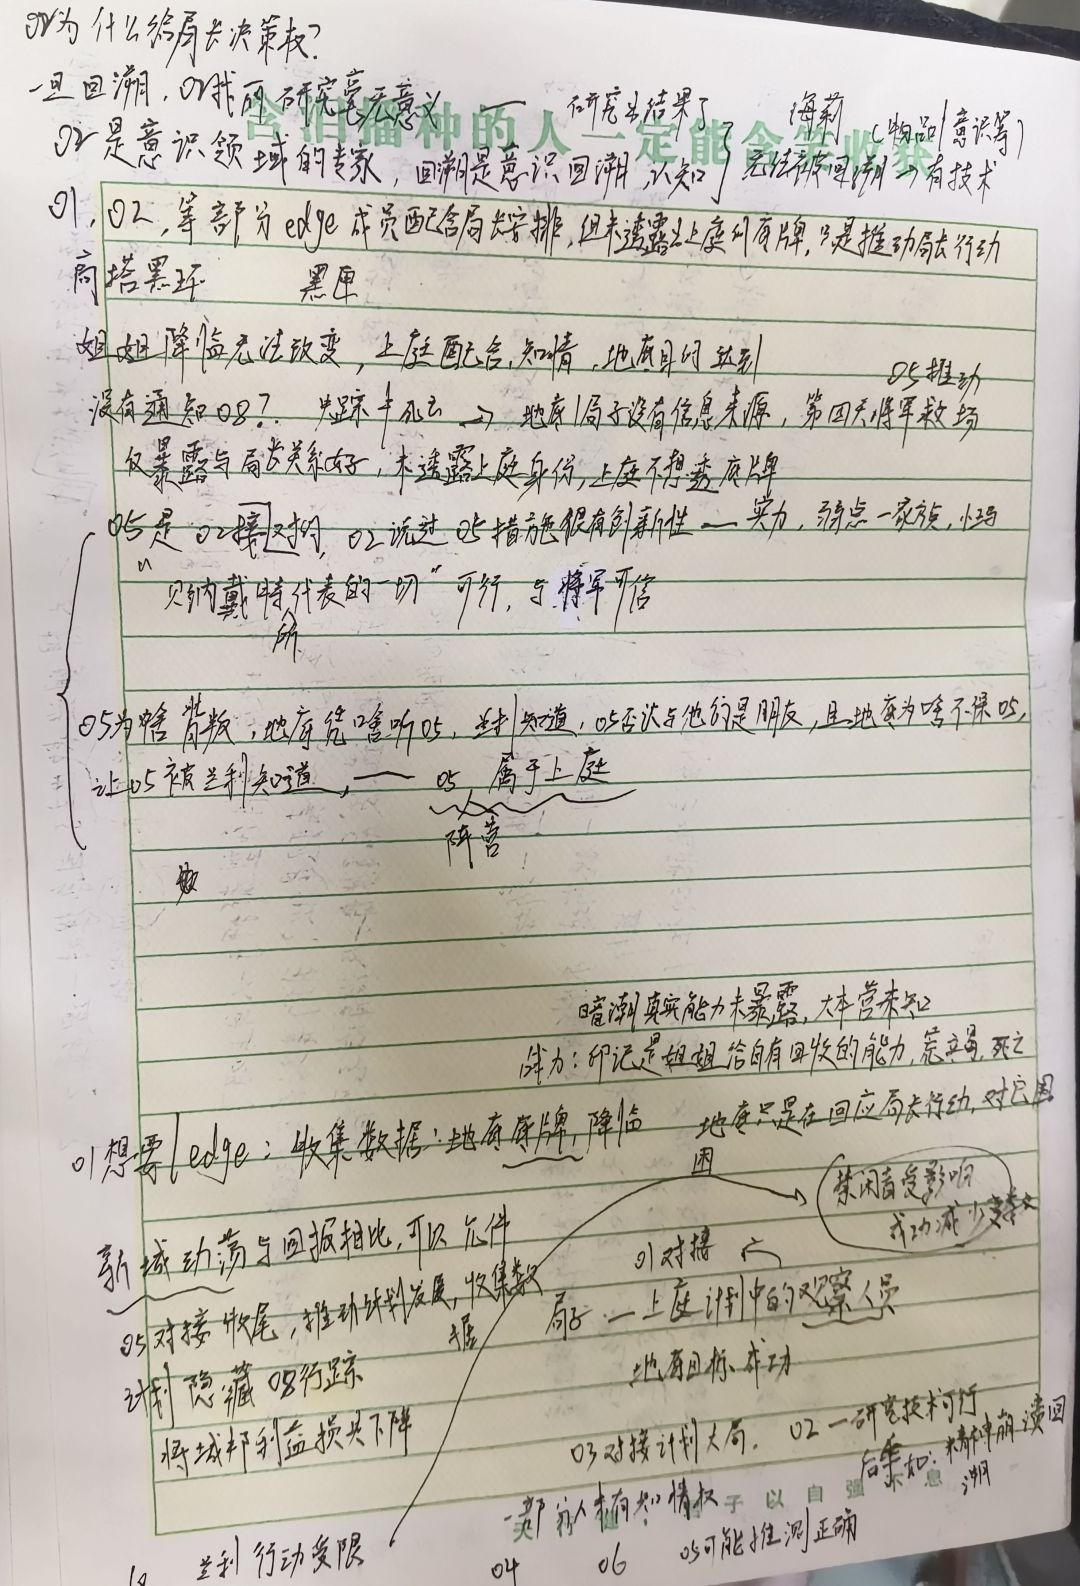 02为什么给局长决策权?
一旦回溯,02我所研究毫无意义 — 研究出结果了 海莉 (物品/意识等)
含泪播种的人一定能含笑收获
02是意识领域的专家,回溯是意识回溯,认知 无法被回溯 有技术
01,02,等部分edge成员配合局长安排,但未透露出上庭的底牌,只是推动局长行动
高塔黑环 黑匣
姐姐降临无法改变,上庭配合,知情,地底目的达到
05推动
没有通知08? 失踪 死亡 → 地底/局子没有信息来源,第四天将军救场
仅暴露与局长关系好,未透露上庭身份,上庭不想透底牌
05是02接对的,02说过05措施很有创新性 — 实力,弱点—家族,
"贝纳戴特所代表的一切"可行,与将军可信
05为啥背叛,地底凭啥听05,兰利知道,05否认与他的是朋友,且地底为啥不保05,
让05被兰利知道, — 05,属于上庭
阵营
暗潮真实能力未暴露,大本营未知
能力:印记是姐姐给自有回收的能力,荒 死亡
01想要/edge:收集数据:地底底牌,降临
地底只是在回应局长行动,对它围困
禁闭者受影响
成功减少变数
新城动荡与回报相比,可以允许
01对接
05对接收尾,推动计划发展,收集数据
局子 — 上庭计划中的观察人员
计划隐藏08行踪
地底目标成功
将城邦利益损失下降
03对接计划大局, 02—研究技术可行
后果如:精神崩溃回溯
一部分人未有知情权
子以自强不息
兰利行动受限
04 06 05可能推测正确